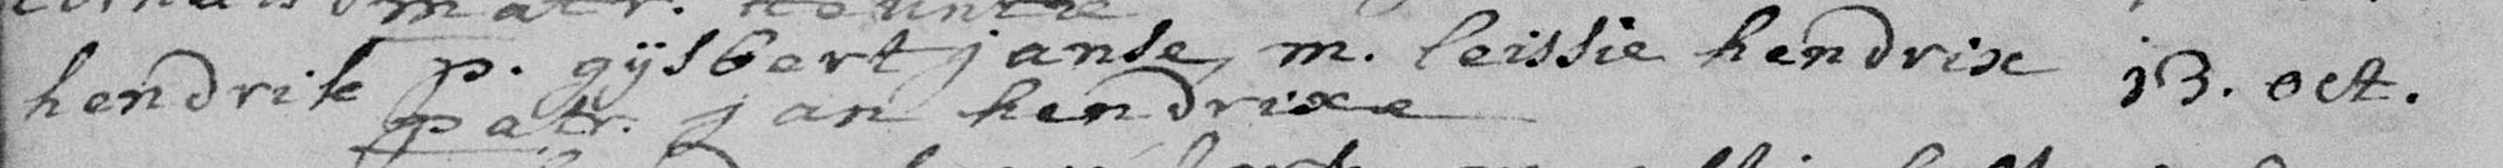 matr.
hendrik p. gijsbert janse, m. leissie hendrix 13. oct.
patr. jan hendrixe